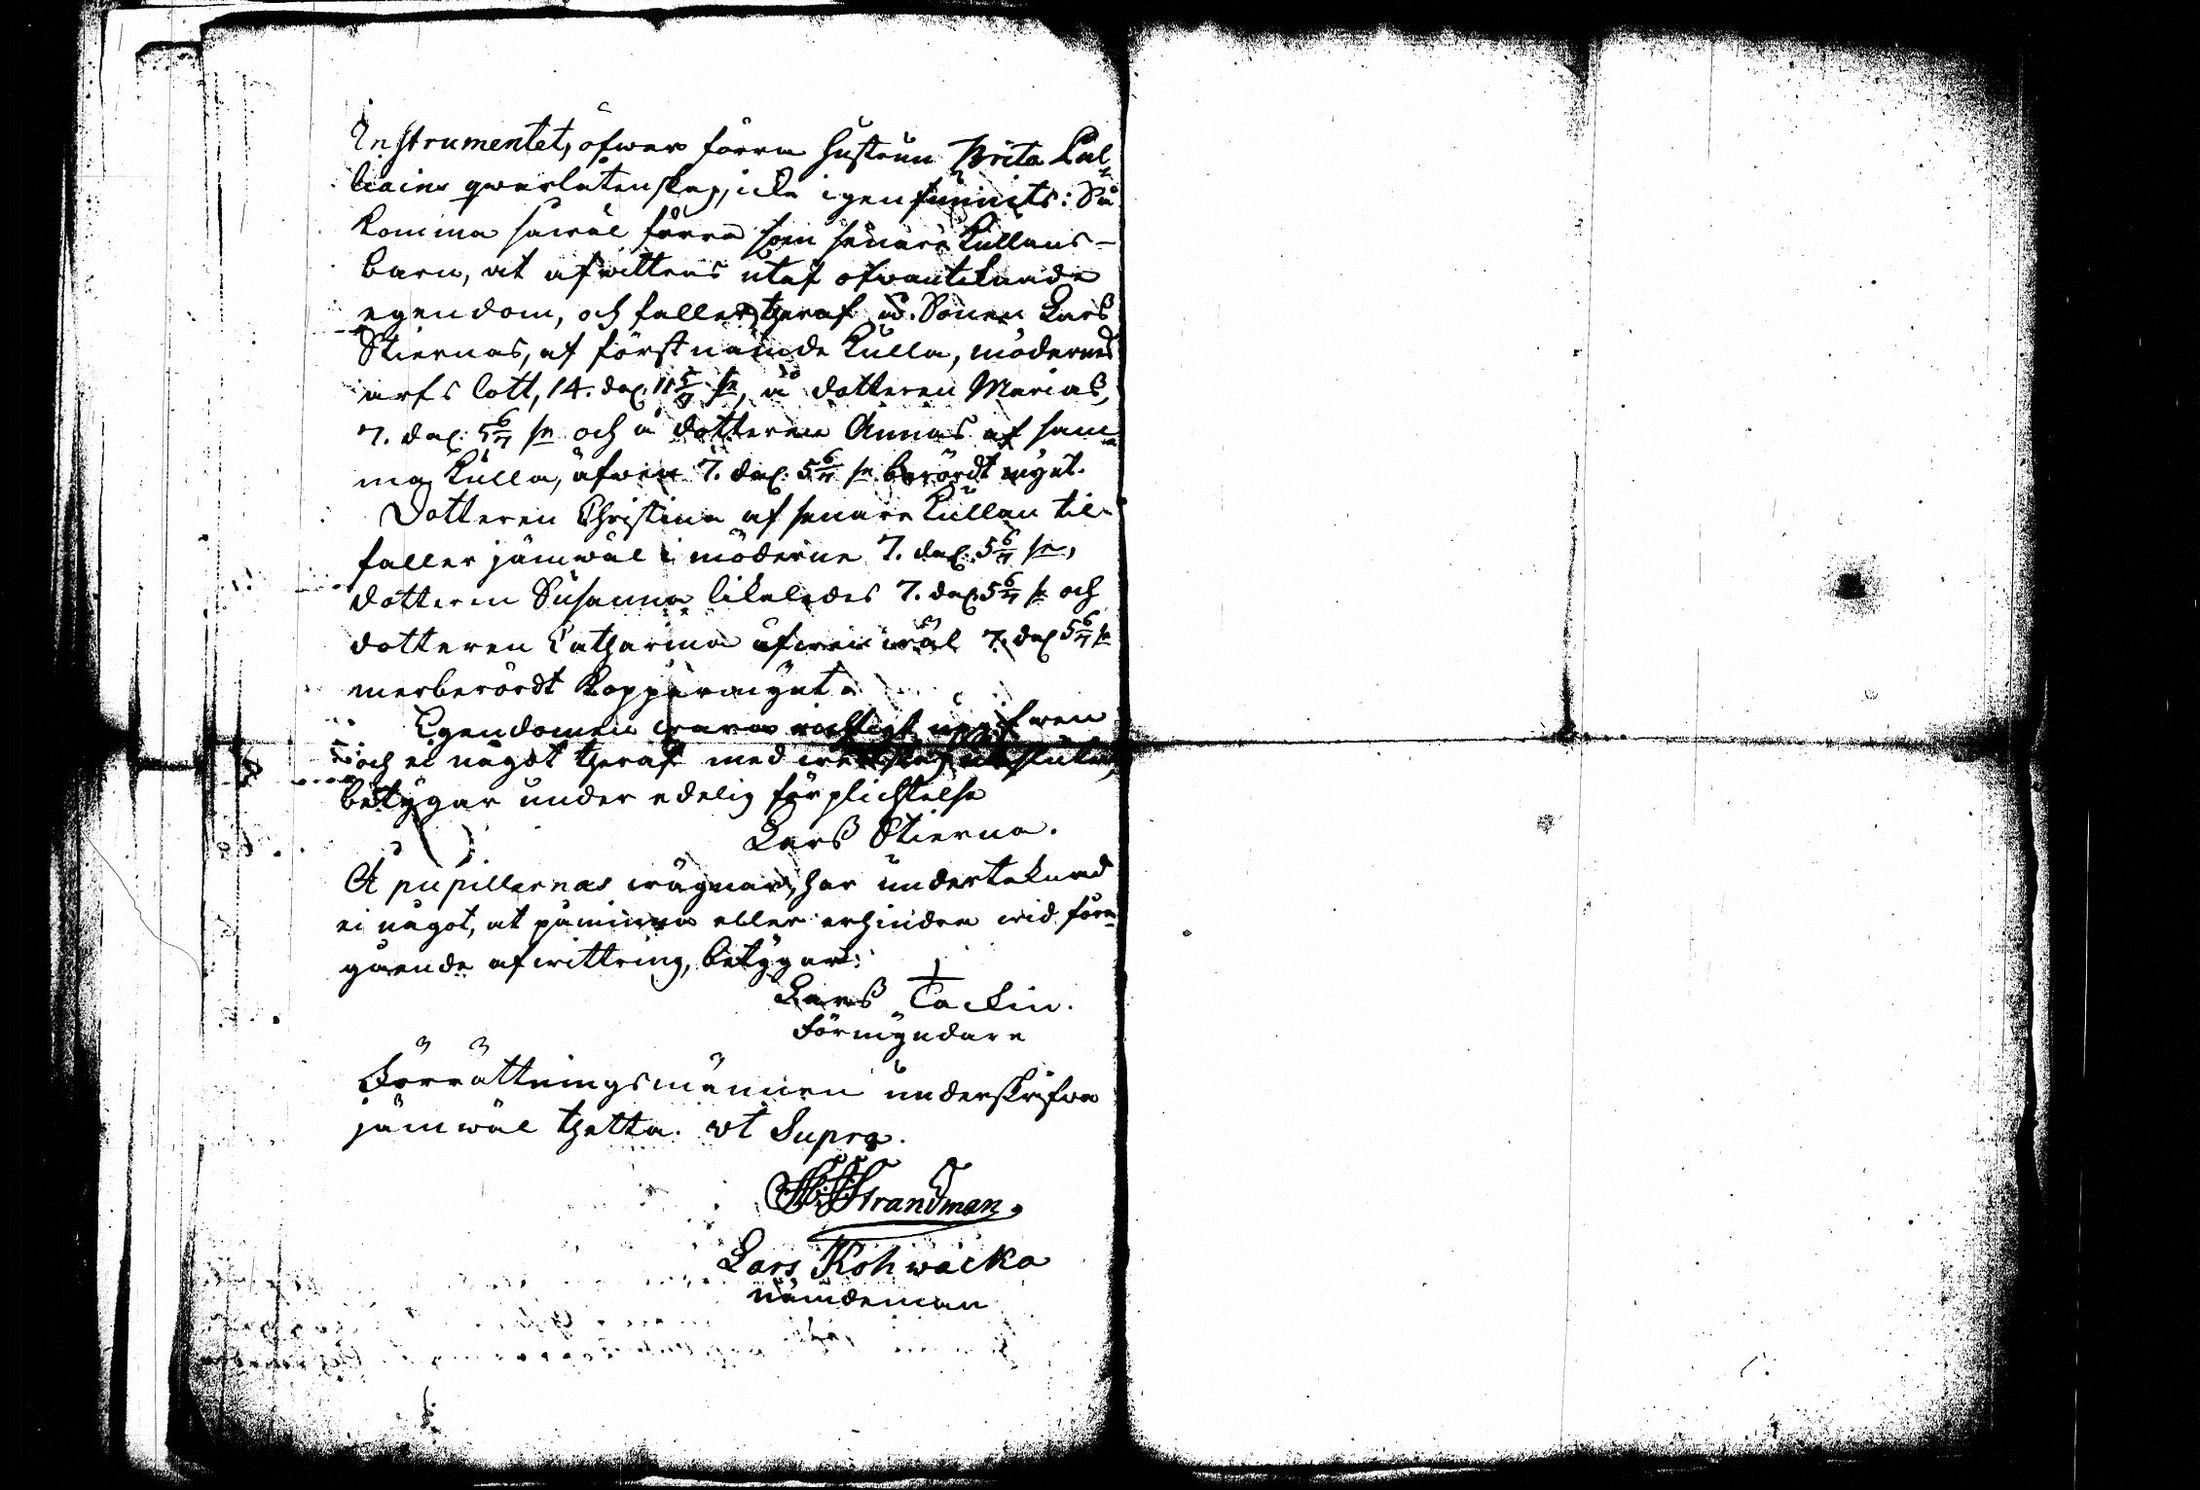 Instrumentet, öfwer förra hustrun Brita Lal-
liains qwarlåtenskap, icke igenfunnits: Så
komma såwäl förra som senare Kullans-
barn, at afwittras utaf ofwantecknade
egendom, och faller theraf å Sonen Lars
Stiernas, af förstnämde Kulla, mödernes
arfs lott, 14. dal. 11 5/7 sr, å dotteren Marias,
7. dal: 5 6/7 sr och å dotteren Annas af sam-
ma Kulla, äfwen 7. dal: 5 6/7 sr berördt mynt.
Dotteren Christina af senare Kullan til-
faller jämwäl i möderne 7. dal: 5 6/7 sr,
dotteren Susanna likaledes 7. dal: 5 6/7 sr och
dotteren Catharina äfwen wäl 7. dal 5 6/7 sr
merberördt Kopparmynt.
Egendomen wara richtigt upgifwen
och ei något theraf med
betygar under edelig förplichtelse
Lars Stierna.
Å pupillernas wägnar, har undertecknad
ei något, at påminna eller erhindra wid före-
gående afwittring, betygar:
Lars Tackin.
Förmyndare
Förrättningsmännen underskrifwa
jämwäl thetta. ut Supra.
Strandman.
Lars Kohwacka
nämdeman